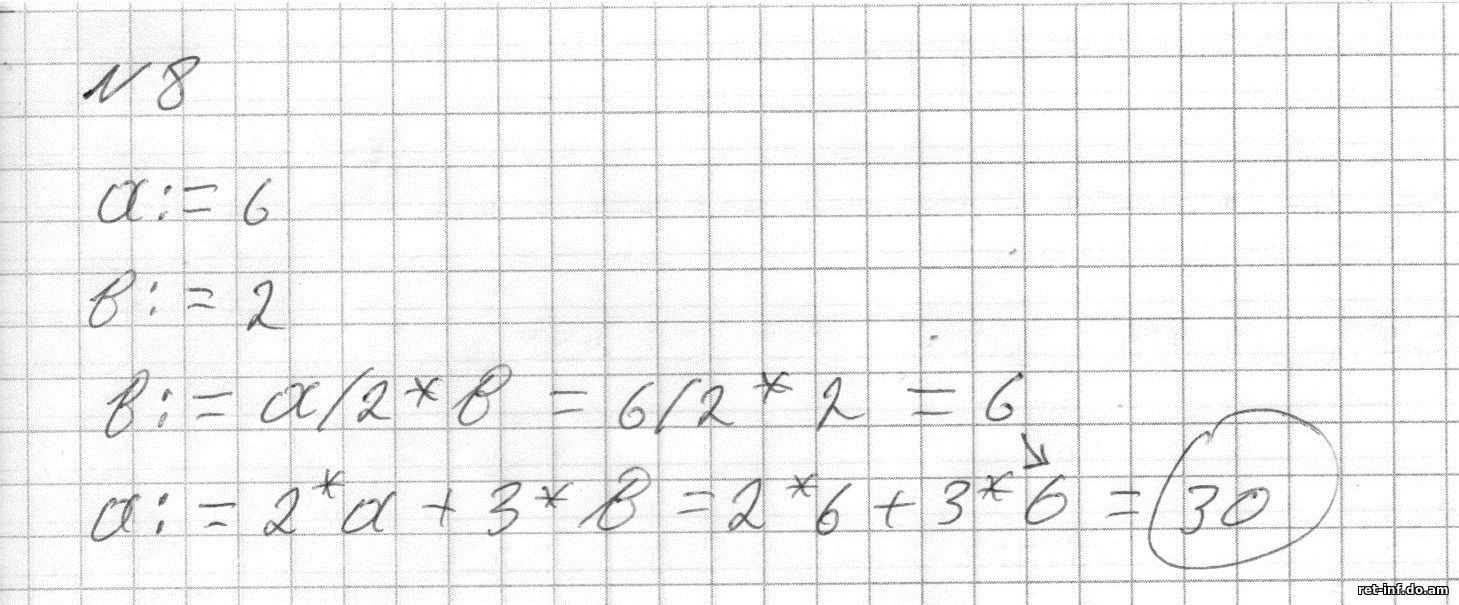 № 8
a := 6
b := 2
b := a/2*b = 6/2*2 = 6
a := 2*a + 3*b = 2*6 + 3*6 = 30
ret-inf.do.am